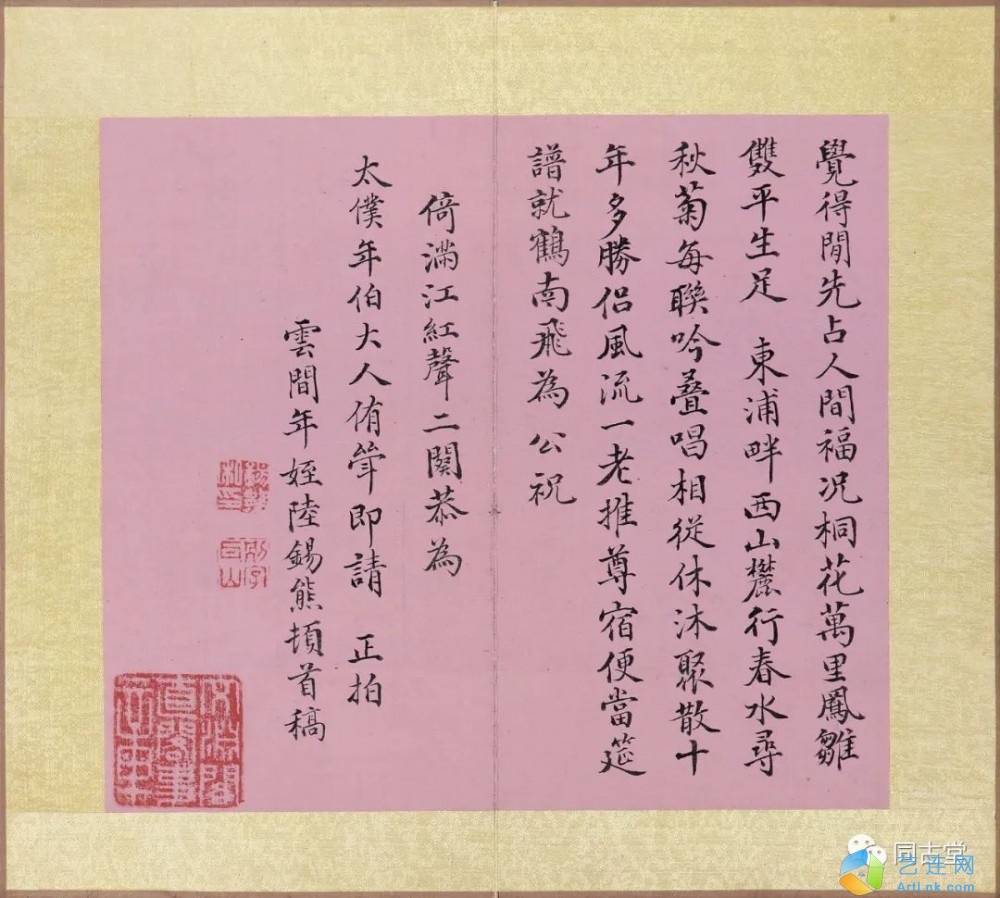 覺得閒先占人間福况桐花萬里鳳雛
雙平生足 東浦畔西山麓行春水尋
秋菊每聯吟疊唱相從休沐聚散十
年多勝侣風流一老推尊宿便當筵
譜就鶴南飛為公祝
倚滿江紅聲二闋恭為
太僕年伯大人侑觴即請 正拍
雲間年姪陸錫熊頓首稿
同古堂
艺连网
ArtLnk.com